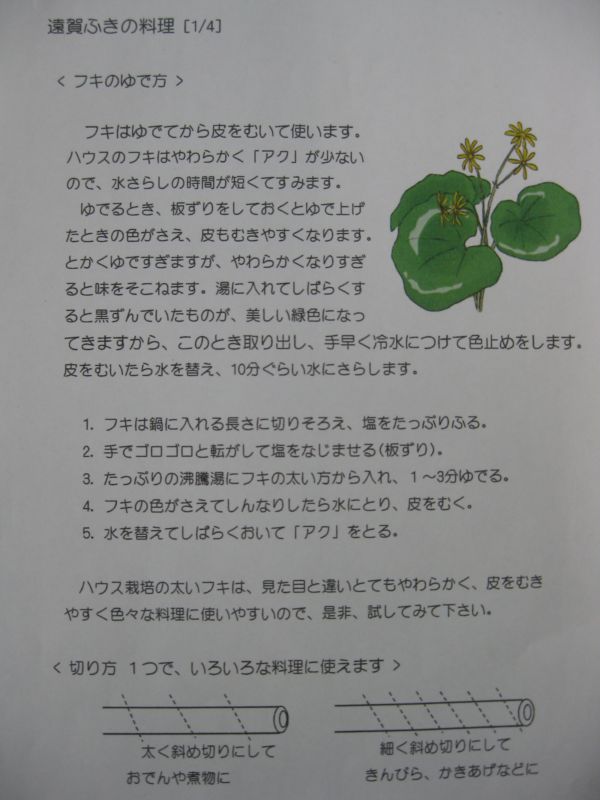 遠賀ふきの料理 [1/4]
< フキのゆで方 >
フキはゆでてから皮をむいて使います。
ハウスのフキはやわらかく「アク」が少ない
ので、水さらしの時間が短くてすみます。
ゆでるとき、板ずりをしておくとゆで上げ
たときの色がさえ、皮もむきやすくなります。
とかくゆですぎますが、やわらかくなりすぎ
ると味をそこねます。湯に入れてしばらくす
ると黒ずんでいたものが、美しい緑色になっ
てきますから、このとき取り出し、手早く冷水につけて色止めをします。
皮をむいたら水を替え、10分ぐらい水にさらします。
1. フキは鍋に入れる長さに切りそろえ、塩をたっぷりふる。
2. 手でゴロゴロと転がして塩をなじませる(板ずり)。
3. たっぷりの沸騰湯にフキの太い方から入れ、１～3分ゆでる。
4. フキの色がさえてしんなりしたら水にとり、皮をむく。
5. 水を替えてしばらくおいて「アク」をとる。
ハウス栽培の太いフキは、見た目と違いとてもやわらかく、皮をむき
やすく色々な料理に使いやすいので、是非、試してみて下さい。
< 切り方 １つで、いろいろな料理に使えます >
太く斜め切りにして
おでんや煮物に
細く斜め切りにして
きんぴら、かきあげなどに